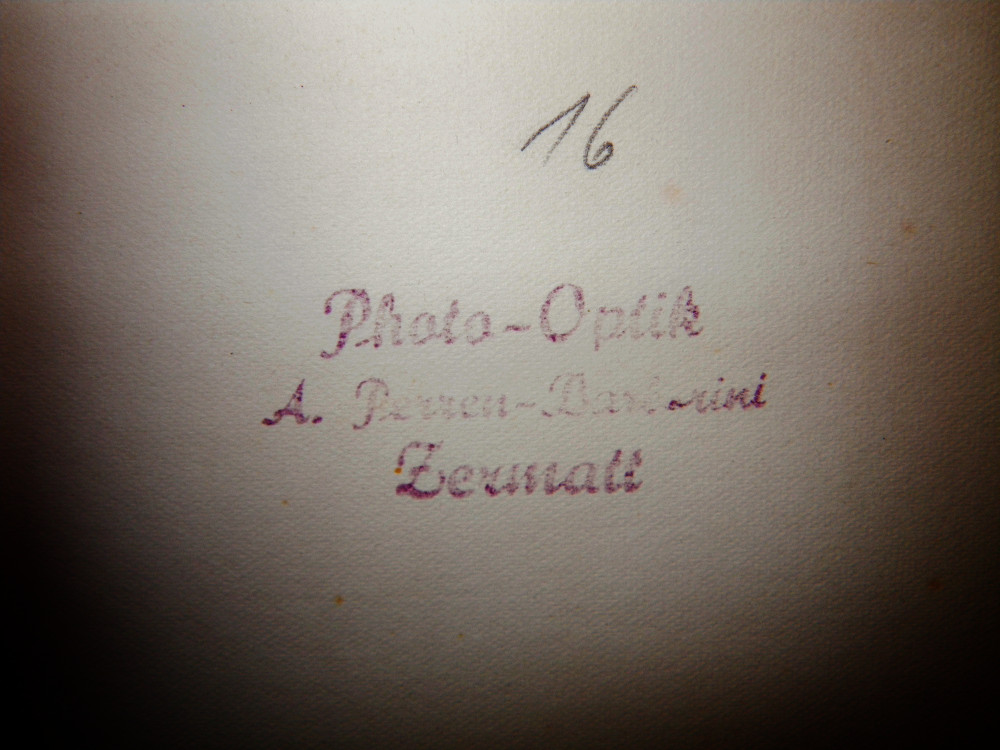 16
Photo-Optik
A. Perren-Barberini
Zermatt